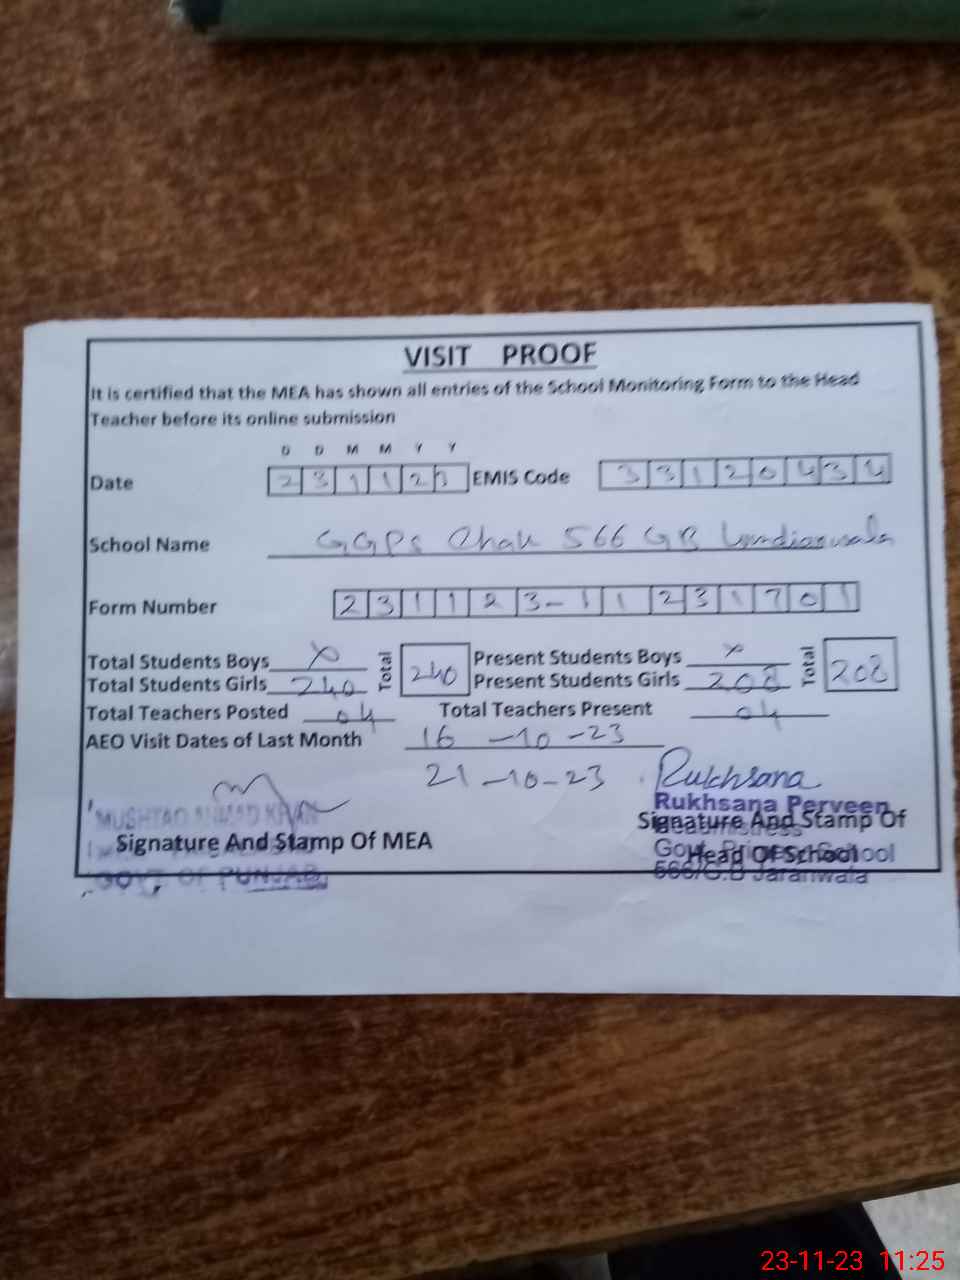 VISIT PROOF
It is certified that the MEA has shown all entries of the School Monitoring Form to the Head
Teacher before its online submission
D D M M Y Y
Date 231123 EMIS Code 33120434
School Name GGPS Chak 566 GB
Form Number 231123-11231701
Total Students Boys × Total 240 Present Students Boys × Total 208
Total Students Girls 240 Present Students Girls 208
Total Teachers Posted 04 Total Teachers Present 04
AEO Visit Dates of Last Month 16-10-23
21-10-23 Rukhsana
MUSHTAQ AHMAD KHAN Rukhsana Perveen
Signature And Stamp Of MEA Signature And Stamp Of
Headmistress
Head Of School
Govt. Primary School
GOVT OF PUNJAB 566/G.B Jaranwala
23-11-23 11:25